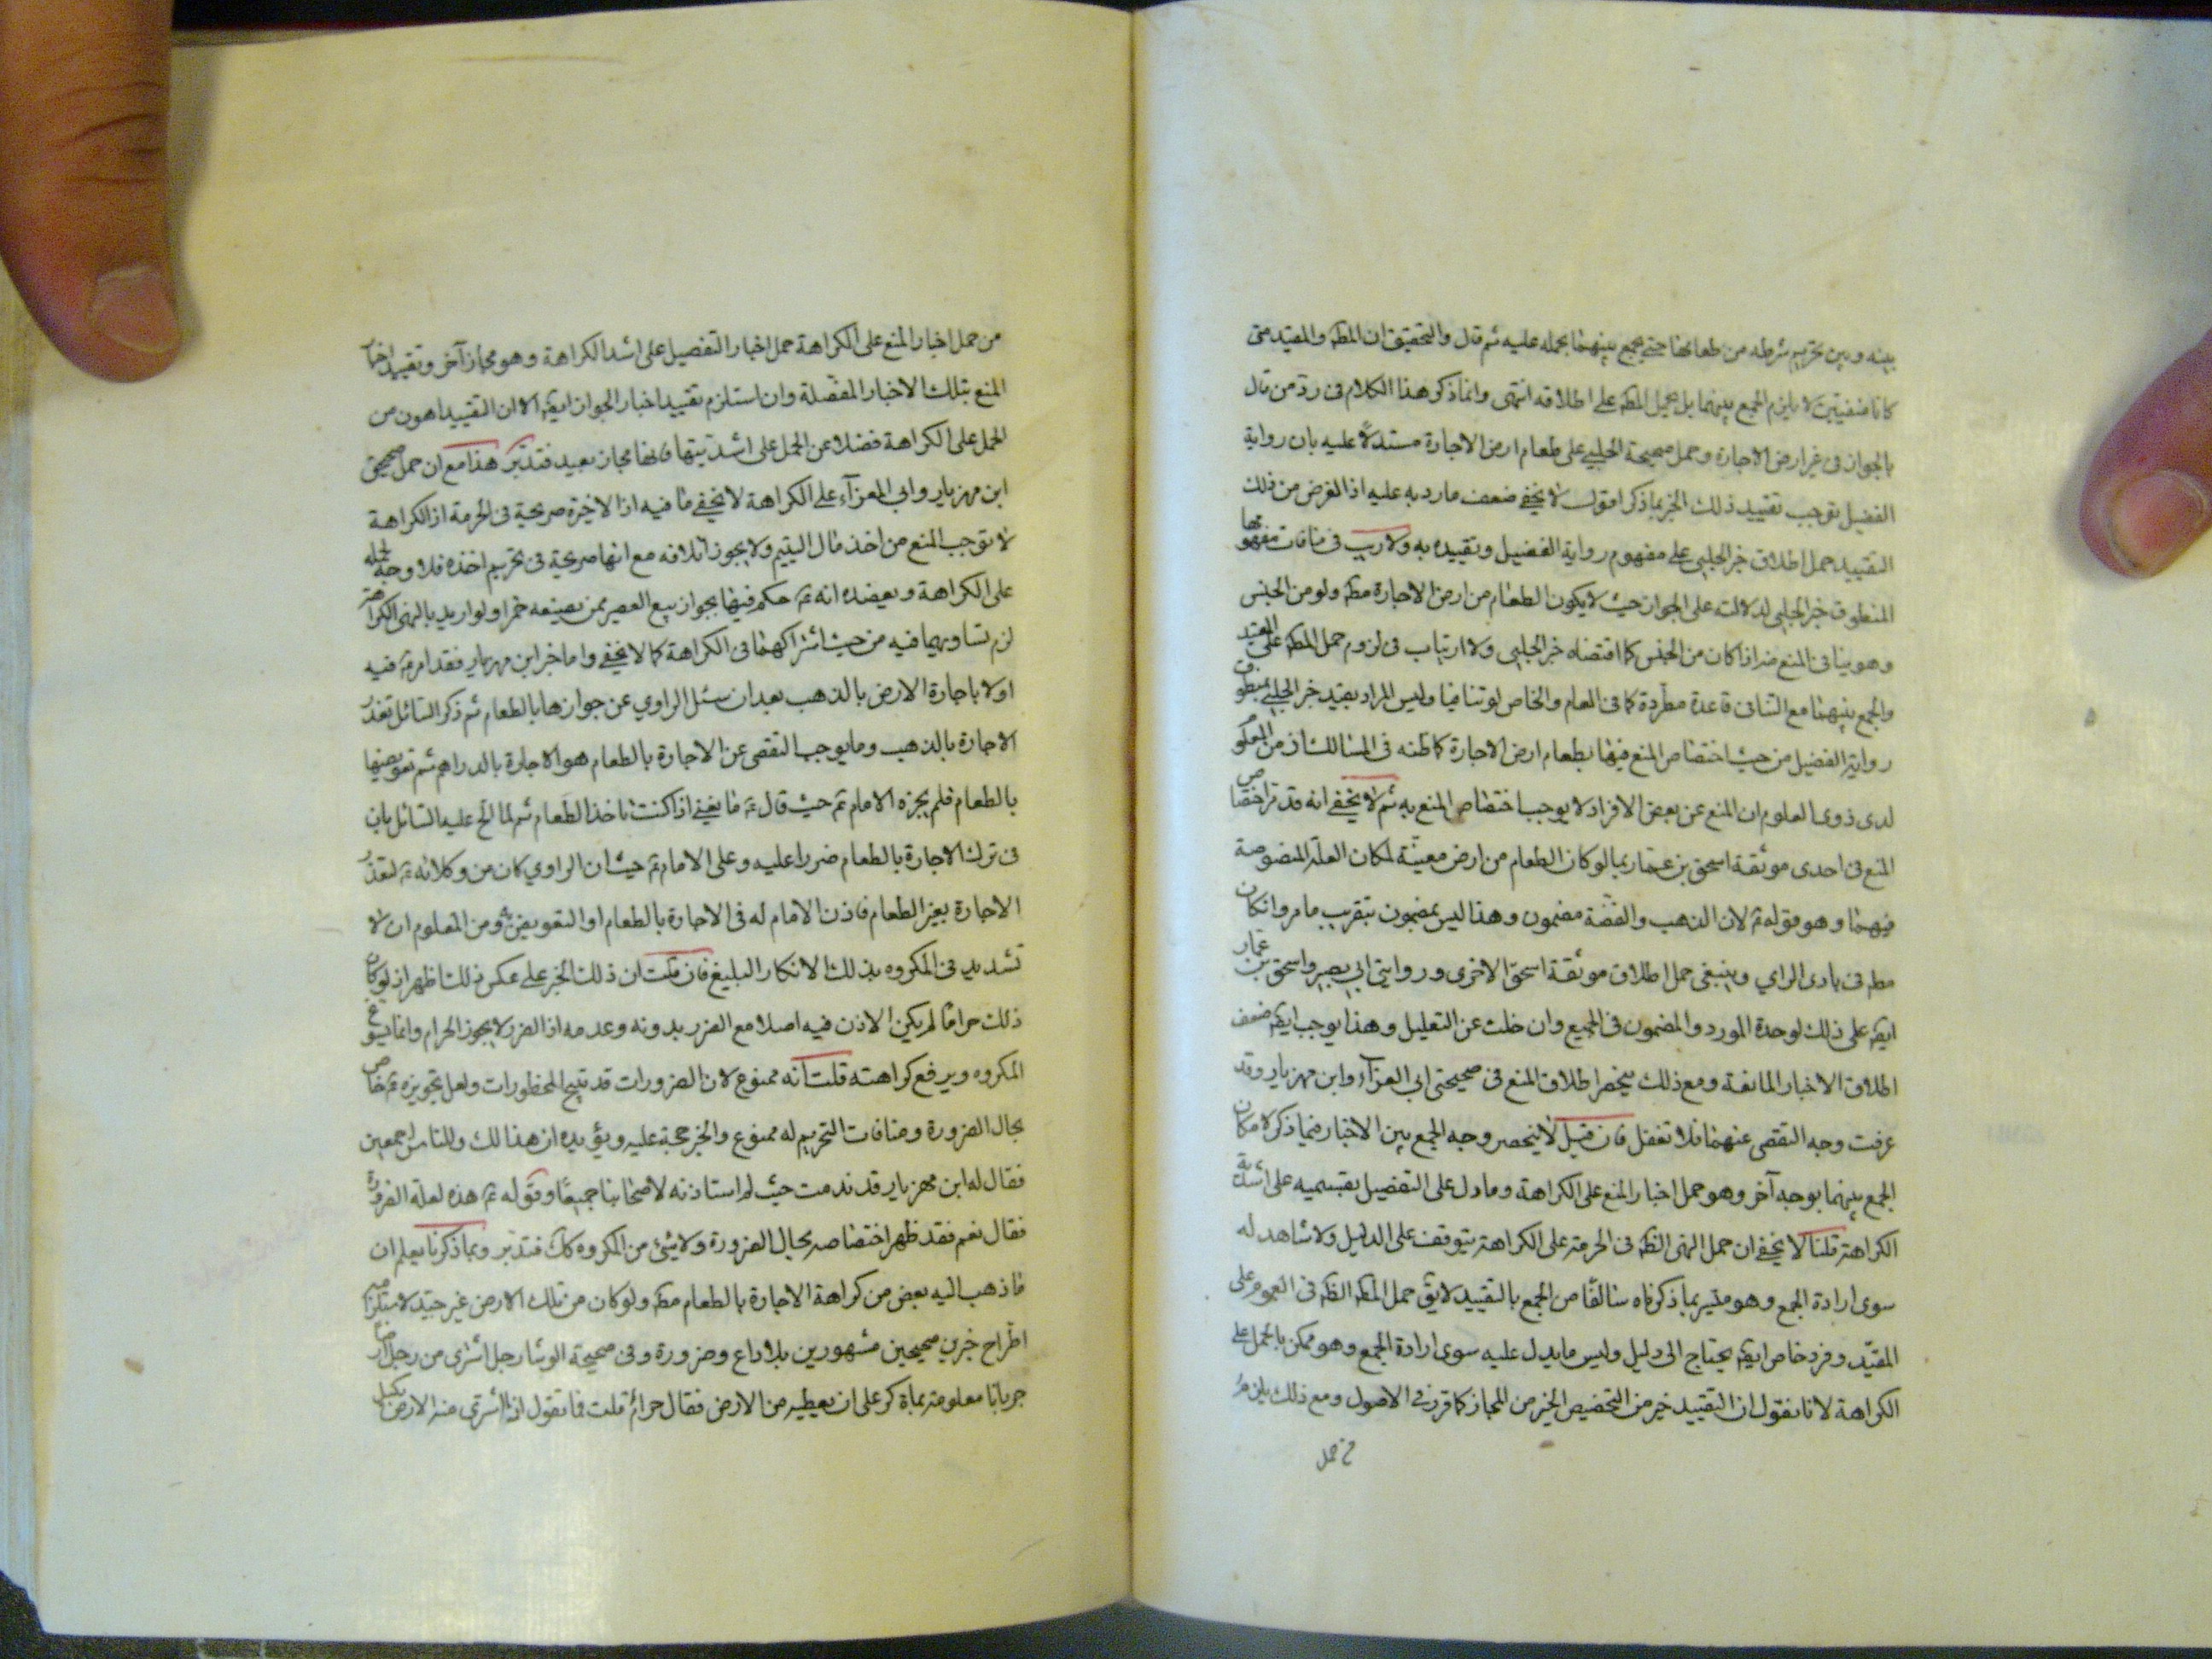 بينه وبين تحريم شرطه من طعامها حتى يجمع بينهما بحمله عليه ثم قال والتحقيق ان المطلق والمقيد متى
كانا منفيين لا يلزم الجمع بينهما بل يحمل المط على اطلاقه انتهى وانما ذكر هذا الكلام فى رد من قال
بالجواز فى غير ارض الاجارة وحمل صحيحة الحلبي على طعام ارض الاجارة مستدلاً عليه بان رواية
الفضيل توجب تقييد ذلك الخبر بما ذكر اقول لا يخفى ضعف ما رد به عليه اذ الغرض من ذلك
التقييد حمل اطلاق خبر الحلبي على مفهوم رواية الفضيل وتقييده به ولا ريب فى منافات مفهومها
المنطوق خبر الحلبي لدلالته على الجواز حيث لا يكون الطعام من ارض الاجارة مط ولو من الجنس
وهو ينافى المنع منه اذا كان من الجنس كما اقتضاه خبر الحلبي ولا ارتياب فى لزوم حمل المط على المقيد
والجمع بينهما مع التنافى قاعدة مطّردة كما فى العام والخاص لو تنافيا وليس المراد بقيد خبر الحلبي بمنطوق
رواية الفضيل من حيث اختصاص المنع فيها بطعام ارض الاجارة كما ظنه فى المسالك اذ من المعلوم
لدى ذوى العلوم ان المنع عن بعض الافراد لا يوجب اختصاص المنع به ثم لا يخفى انه قد اختصاص
المنع فى احدى موثقة اسحق بن عمار بما لو كان الطعام من ارض معينة لمكان العلة المنصوصة
فيهما وهو قوله ع لان الذهب والفضة مضمون وهذا ليس بمضمون بتقريب ما مر وان كان
مط فى بادى الراي وينبغى حمل اطلاق موثقة اسحق الاخرى وروايتى ابي بصير واسحق بن عمار
ايض على ذلك لوحدة المورد والمضمون فى الجميع وان خلت عن التعليل وهذا يوجب ايض ضعف
اطلاق الاخبار المانعة ومع ذلك ينحصر اطلاق المنع فى صحيحتى ابي المعزآء وابن مهزيار وقد
عرفت وجه التفصى عنهما فلا تغفل فان قيل لا ينحصر وجه الجمع بين الاخبار فيما ذكر لامكان
الجمع بينهما بوجه آخر وهو حمل اخبار المنع على الكراهة وما دل على التفصيل بقسميه على اشدية
الكراهة قلنا لا يخفى ان حمل النهى الظ فى الحرمة على الكراهة يتوقف على الدليل ولا شاهد له
سوى ارادة الجمع وهو متيسر بما ذكرناه سالفًا من الجمع بالتقييد لا يق حمل المط الظ فى العموم على
المقيّد وفرد خاص ايض يحتاج الى دليل وليس ما يدل عليه سوى ارادة الجمع وهو ممكن بالحمل على
الكراهة لانا نقول ان التقييد خير من التخصيص الخير من المجاز كما قرر فى الاصول ومع ذلك يلزم
من حمل
من حمل اخبار المنع على الكراهة حمل اخبار التفصيل على اشد الكراهة وهو مجاز آخر وتقييد اخبار
المنع بتلك الاخبار المفصّلة وان استلزم تقييد اخبار الجواز ايض الا ان التقييد اهون من
الحمل على الكراهة فضلا عن الحمل على اشديتها فانها مجاز بعيد فتدبّر هذا مع ان حمل صحيحتى
ابن مهزيار وابي المعزآء على الكراهة لا يخفى ما فيه اذ الاخيرة صريحة فى الحرمة اذ الكراهة
لا توجب المنع من اخذ مال اليتيم ولا يجوز اتلافه مع انها صريحة فى تحريم اخذه فلا وجه لحمله
على الكراهة ويعضده انه ع حكم فيها بجواز بيع العصير ممن يصنعه خمرا ولو اريد بالنهى الكراهة
لزم تساويهما فيه من حيث اشتراكهما فى الكراهة كما لا يخفى واما خبر ابن مهزيار فقد امر ع فيه
اولا باجارة الارض بالذهب بعد ان سئل الراوي عن جوازها بالطعام ثم ذكر السائل تعذر
الاجارة بالذهب وما يوجب التفصى عن الاجارة بالطعام هو الاجارة بالدراهم ثم تعويضها
بالطعام فلم يجزه الامام ع حيث قال ع ما يغنى اذا كنت تاخذ الطعام ثم لما الح عليه السائل بان
فى ترك الاجارة بالطعام ضررا عليه وعلى الامام ع حيث ان الراوي كان من وكلائه ع لتعذر
الاجارة بغير الطعام فاذن الامام له فى الاجارة بالطعام او التعويض به ومن المعلوم ان لا
تشديد فى المكروه بذلك الانكار البليغ فان قلت ان ذلك الخبر على عكس ذلك اظهر اذ لو كان
ذلك حرامًا لم يكن الاذن فيه اصلا مع الضرر بدونه وعدمه اذ الضرر لا يجوز الحرام وانما يسوغ
المكروه ويرفع كراهته قلت انه ممنوع لان الضرورات قد تبيح المحظورات ولعل تجويزه ع خاص
بحال الضرورة ومنافات التحريم له ممنوع والخبر حجة عليه ويؤيده ان هذا لك وللناس اجمعين
فقال له ابن مهزيار قد ندمت حيث لم استاذنه لاصحابنا جميعًا وقوله ع هذه لعلة الضرورة
فقال نعم فقد ظهر اختصاصه بحال الضرورة ولا شئ من المكروه كك فتدبّر وبما ذكرنا يعلم ان
ما ذهب اليه بعض من كراهة الاجارة بالطعام مط ولو كان من تلك الارض غير جيّد لاستلزامه
اطّراح خبرين صحيحين مشهورين بلا داع وضرورة وفى صحيحة الوشا رجل اشترى من رجل ارضا
جربانا معلومة بمأة كر على ان يعطيه من الارض فقال حرام قلت فما تقول اذا اشترى منه الارض بكيل